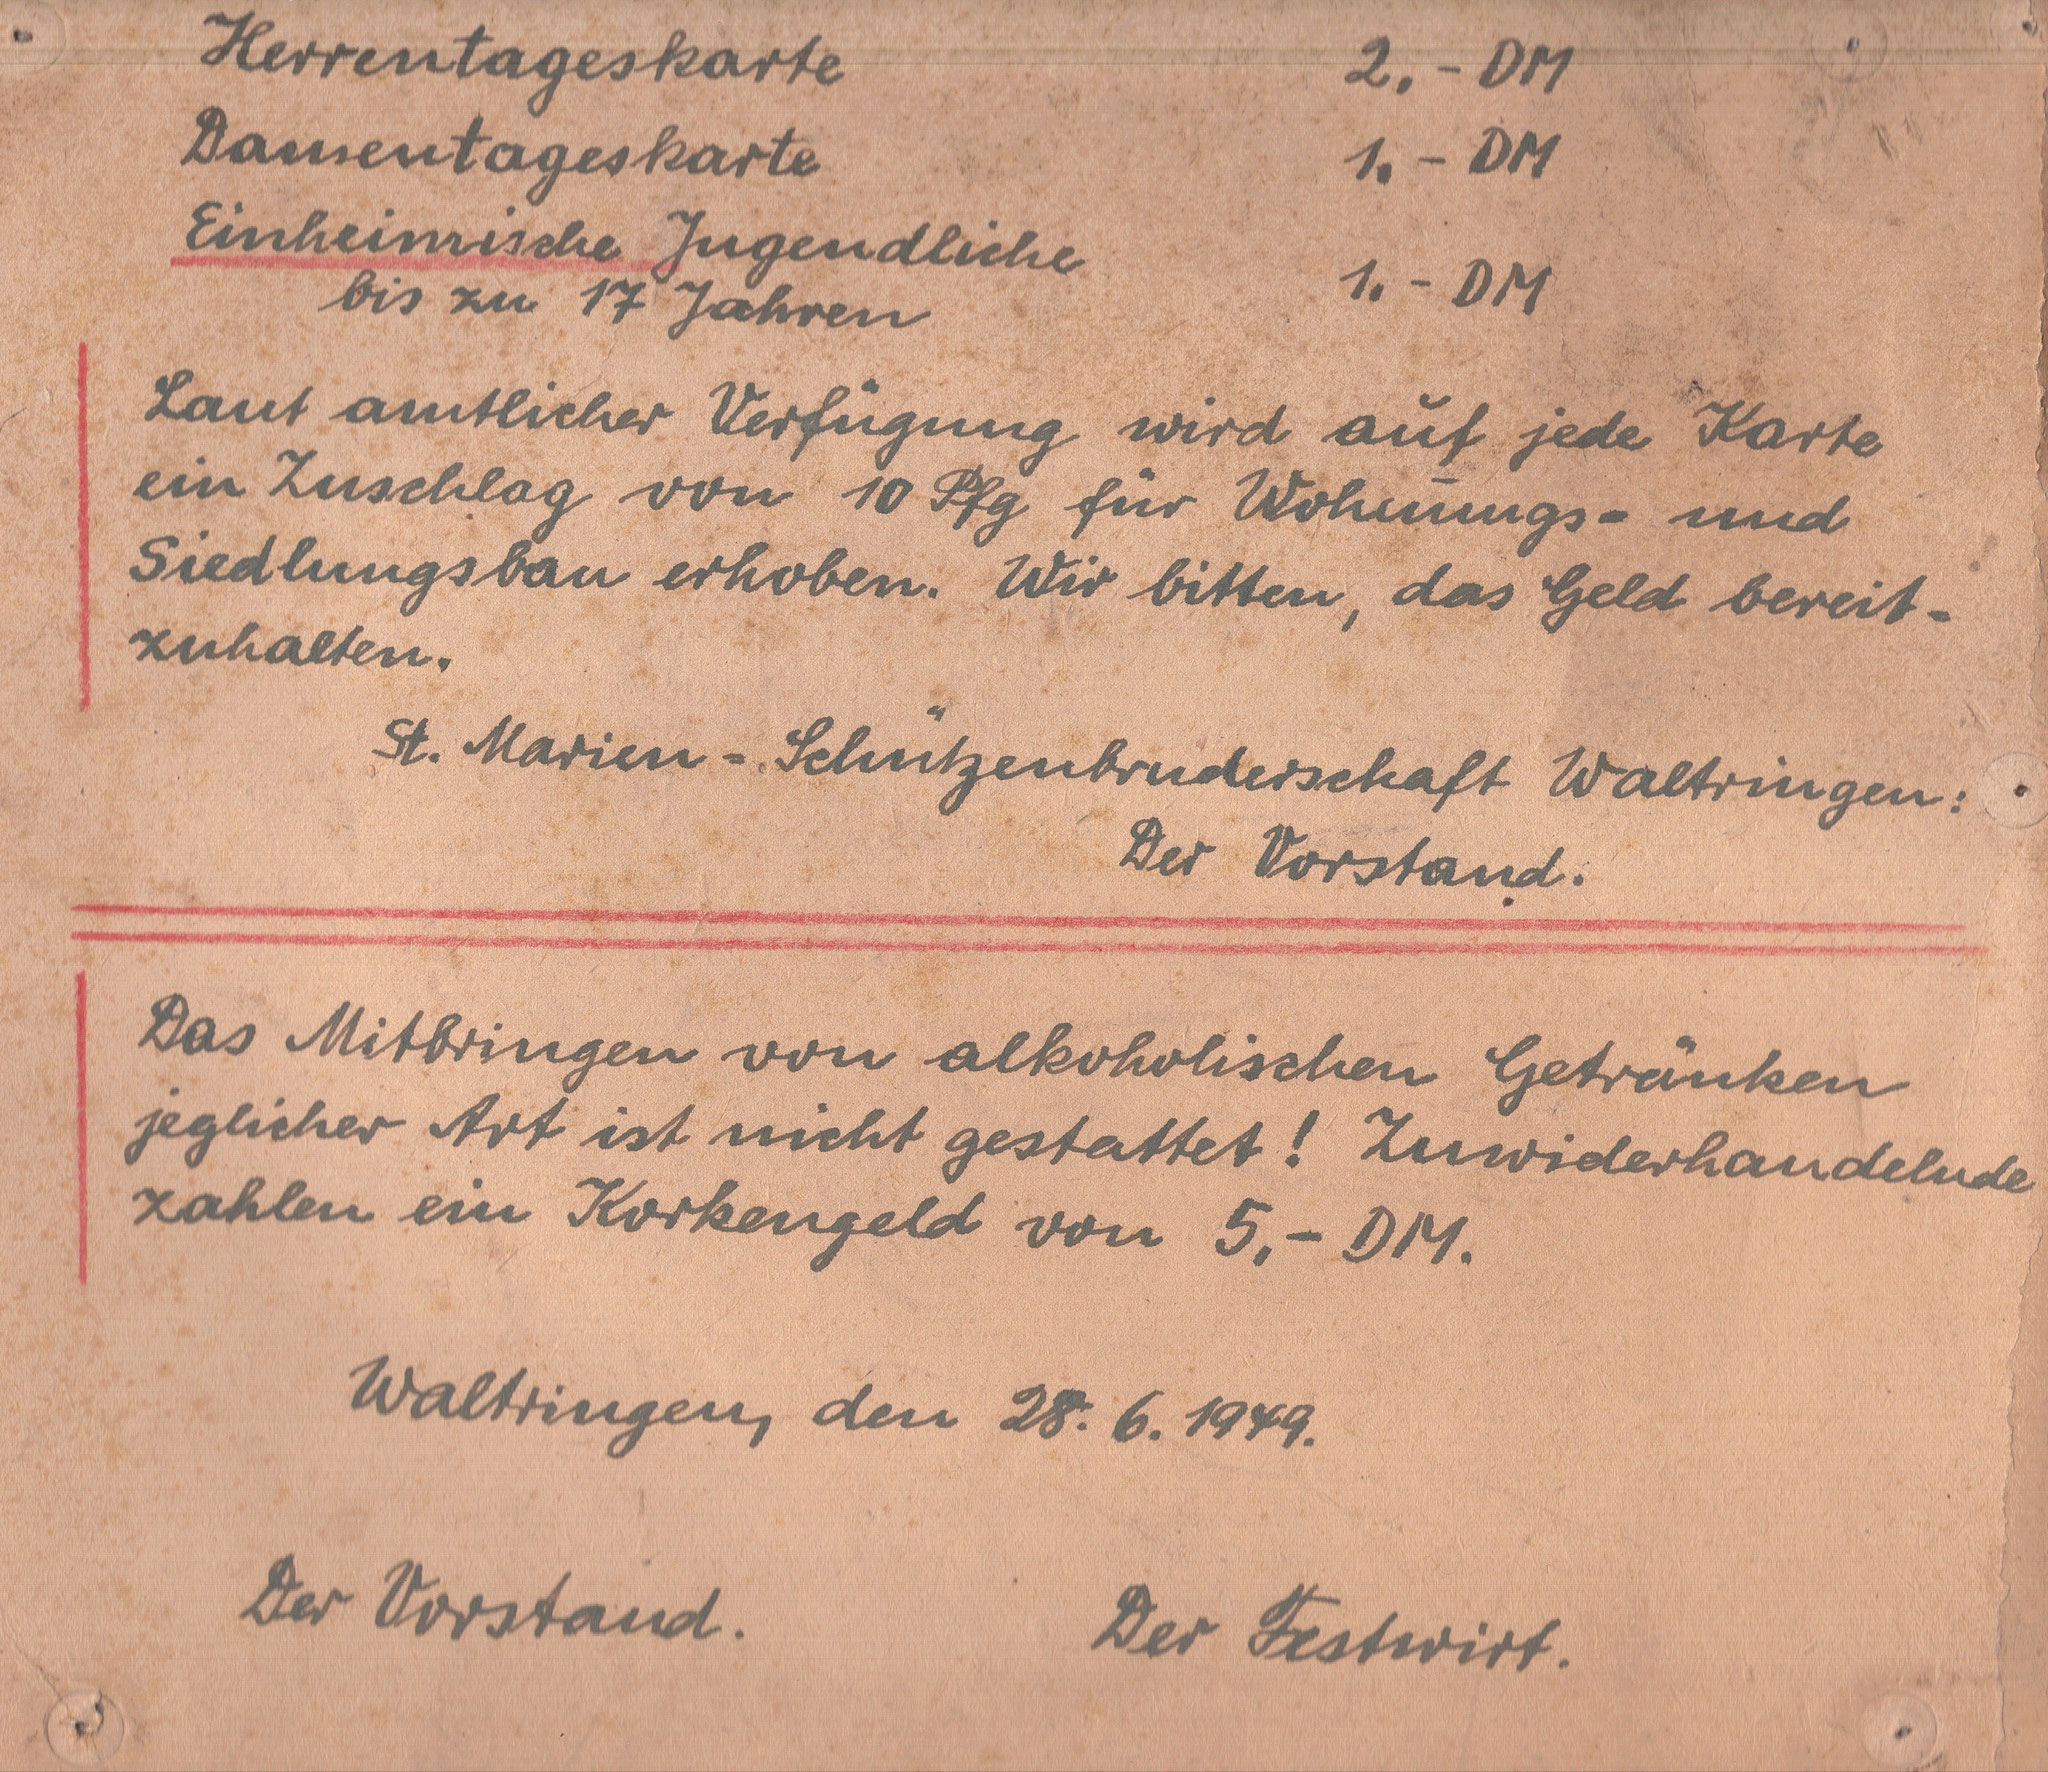 Herrentageskarte 2.- DM
Damentageskarte 1.- DM
Einheimische Jugendliche
bis zu 17 Jahren 1.- DM
Laut amtlicher Verfügung wird auf jede Karte
ein Zuschlag von 10 Pfg für Wohnungs- und
Siedlungsbau erhoben. Wir bitten, das Geld bereit-
zuhalten.
St. Marien-Schützenbruderschaft Waltringen:
Der Vorstand.
Das Mitbringen von alkoholischen Getränken
jeglicher Art ist nicht gestattet! Zuwiderhandelnde
zahlen ein Korkengeld von 5,- DM.
Waltringen, den 28. 6. 1949.
Der Vorstand. Der Festwirt.